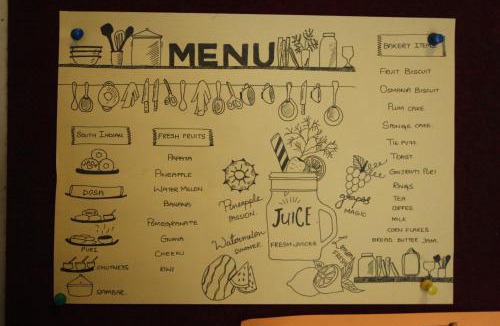 MENU
SOUTH INDIAN
DOSA
PURI
CHUTNEYS
SAMBAR
FRESH FRUITS
PAPAYA
PINEAPPLE
WATER MELON
BANANA
POMEGRANATE
GUAVA
CHEEKU
KIWI
Pineapple
PASSION
Watermelon
JUICE
FRESH JUICES
grapes
MAGIC
BAKERY ITEMS
FRUIT BISCUIT
OSMANIA BISCUIT
PLUM CAKE
SPONGE CAKE
TOAST
GUJRATHI PURI
RINGS
TEA
COFFEE
MILK
CORN FLAKES
BREAD BUTTER JAM